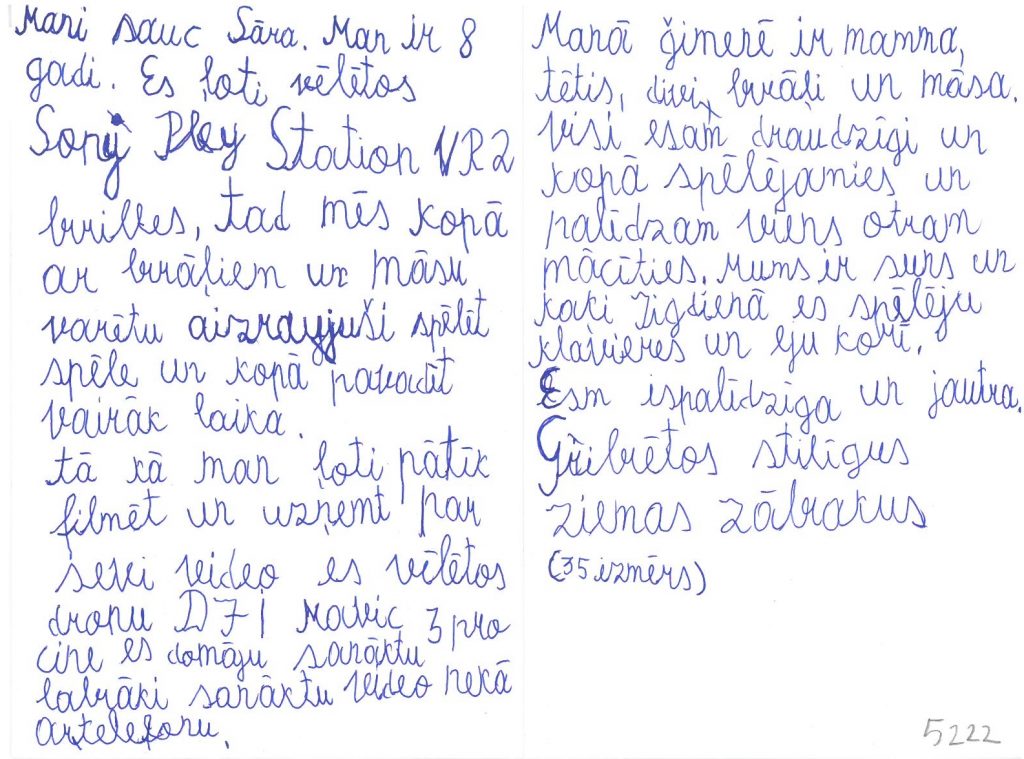 Mani sauc Sāra. Man ir 8
gadi. Es ļoti vēlētos
Sony Pley Station VR2
brilles, tad mēs kopā
ar brāļiem un māsu
varētu aizraujuši spēlēt
spēle un kopā pavadīt
vairāk laika.
tā kā man ļoti pātīk
filmēt un uzņemt par
sevi video es vēlētos
dronu DJI Mavic 3 pro
cine es domāju sanāktu
labrāki sanāktu video nekā
ar telefonu.
Manā ģimenē ir mamma,
tētis, divi brāļi un māsa.
Visi esam draudzīgi un
kopā spēlējamies un
palīdzam viens otram
mācīties. Mums ir suns un
kaķi Ikdienā es spēlēju
klavieres un eju korī.
Esm ispalīdzīga un jautra.
Gribētos stilīgus
ziemas zābakus
(35 izmērs)
5222